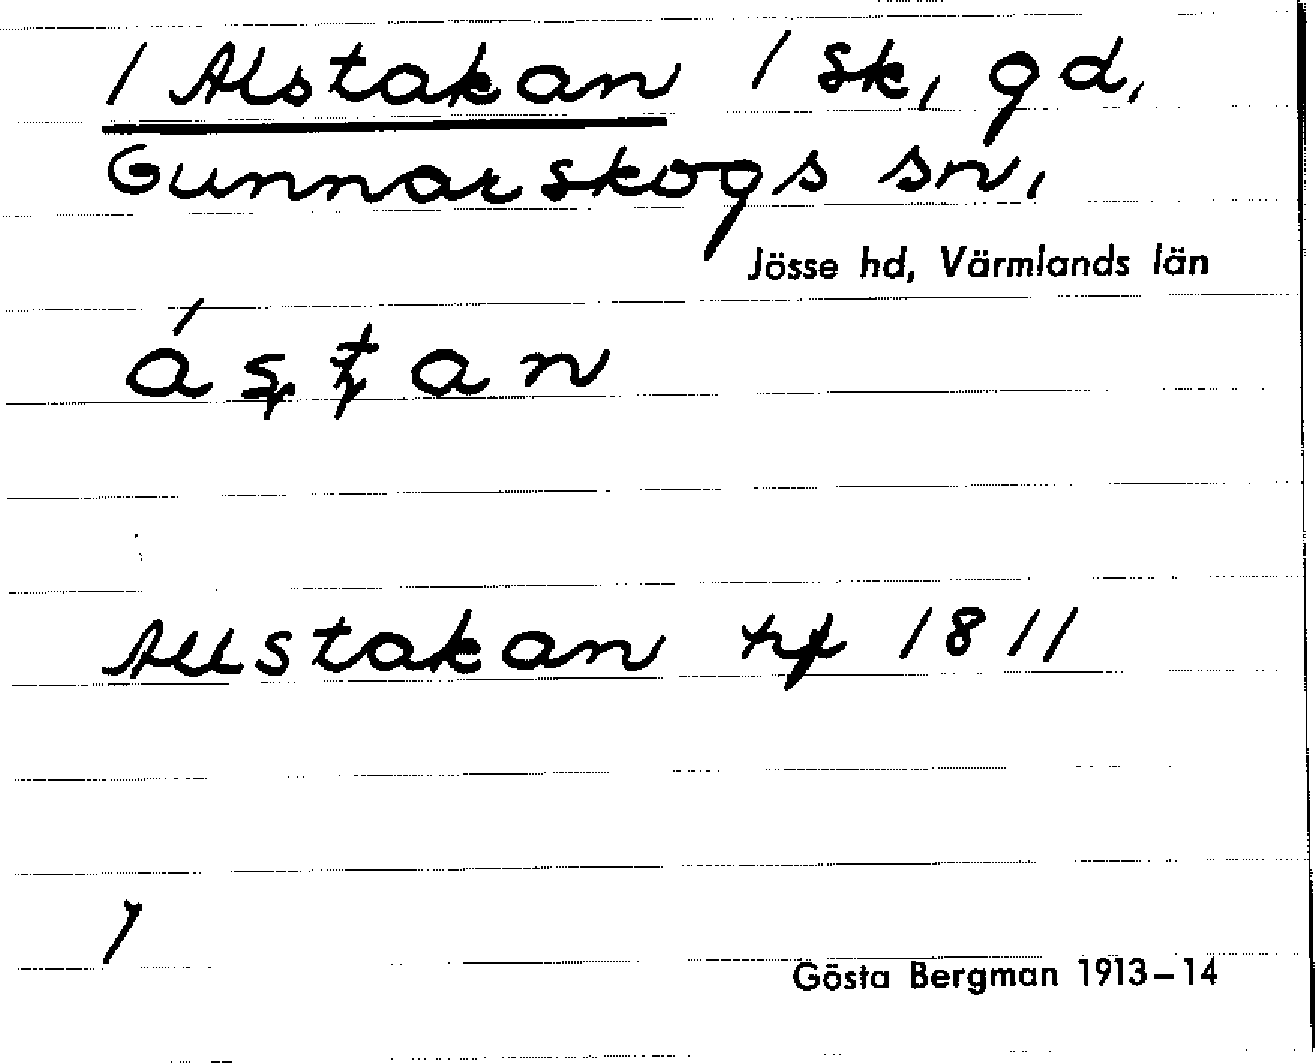 / Alstakan / Sk, gd,
Gunnarskogs sn,
Jösse hd, Värmlands län
Allstakan rf 1811
Gösta Bergman 1913–14